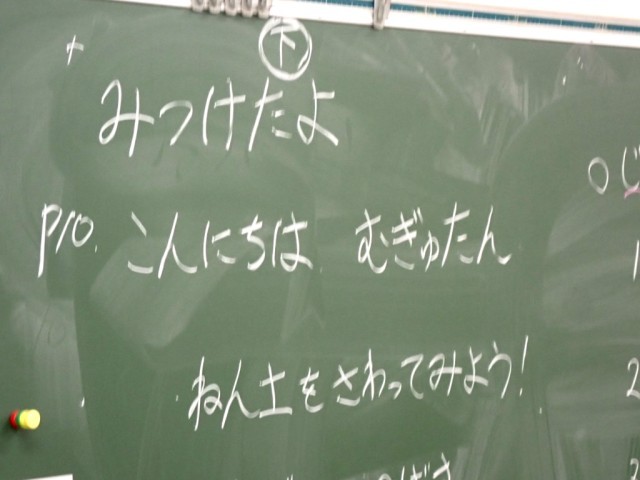 下
みつけたよ
P10. こんにちは むぎゅたん
ねん土をさわってみよう!
○じ
1
2